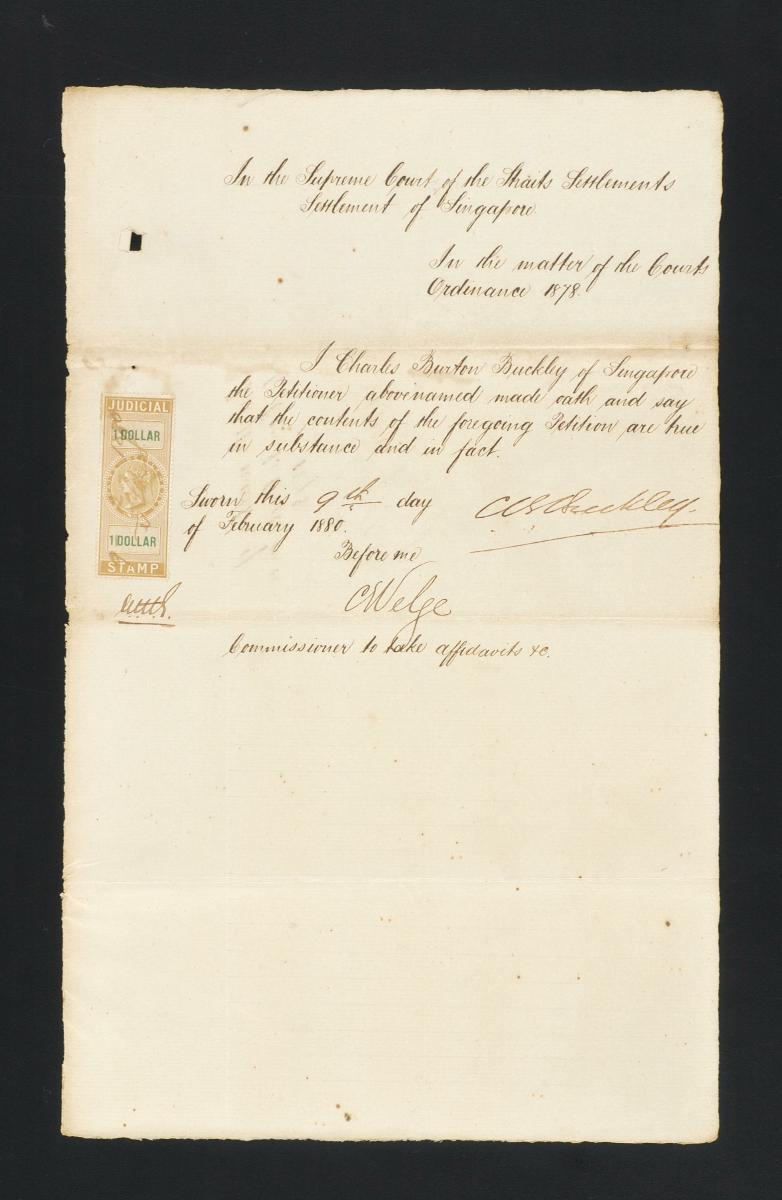 In the Supreme Court of the Straits Settlements
Settlement of Singapore
In the matter of the Courts
Ordinance 1878.
I Charles Burton Buckley of Singapore
the Petitioner abovenamed made oath and say
that the contents of the foregoing Petition are true
in substance and in fact.
Sworn this 9th day
of February 1880.
CBBuckley.
Before me
CWelge
Commissioner to take affidavits &c.
JUDICIAL
1 DOLLAR
1 DOLLAR
STAMP